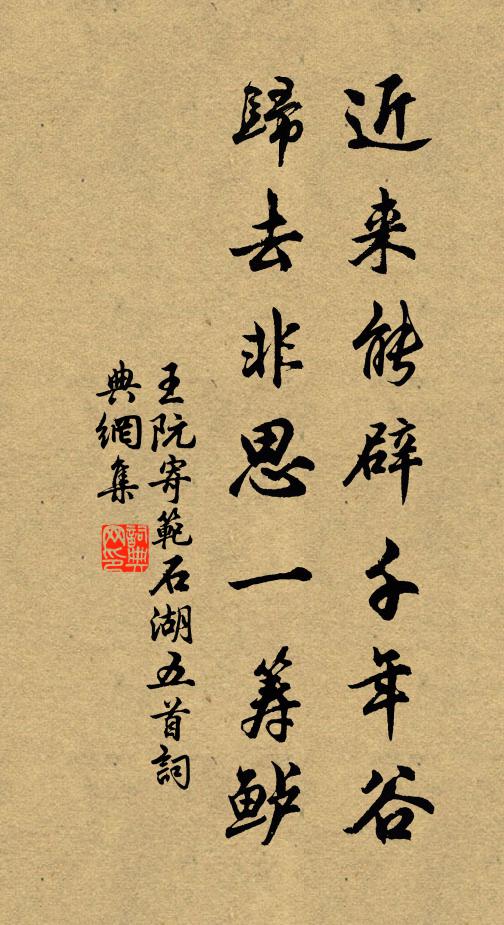 近来能辟千年谷
歸去非思一箸鲈
王阮寄範石湖五首詞
典網集
詞典
网印